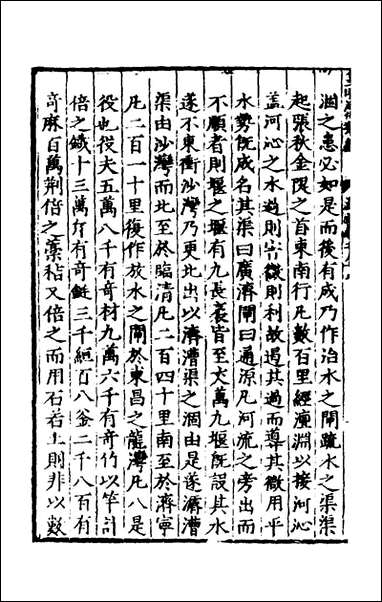 涸之患必如是而後有成乃作治水之閘疏水之渠渠
起張秋金隄之首東南行凡數百里經澶淵以接河沁
盖河沁之水過則害微則利故遏其過而導其微用平
水勢既成名其渠曰廣濟閘曰通源凡河流之旁出而
不順者則堰之堰有九長袤皆至丈萬九堰既設其水
遂不東衝沙灣乃更北出以濟漕渠之涸由是遂濬漕
渠由沙灣而北至於臨清凡二百四十里南至於濟寧
凡二百一十里復作放水之閘於東昌之龍灣凡八是
役也役夫五萬八千有奇材九萬六千有奇竹以竿計
倍之鐵十三萬斤有奇鋌三千絙百八釜二千八百有
奇麻百萬荆倍之藁秸又倍之而用石若土則非以數